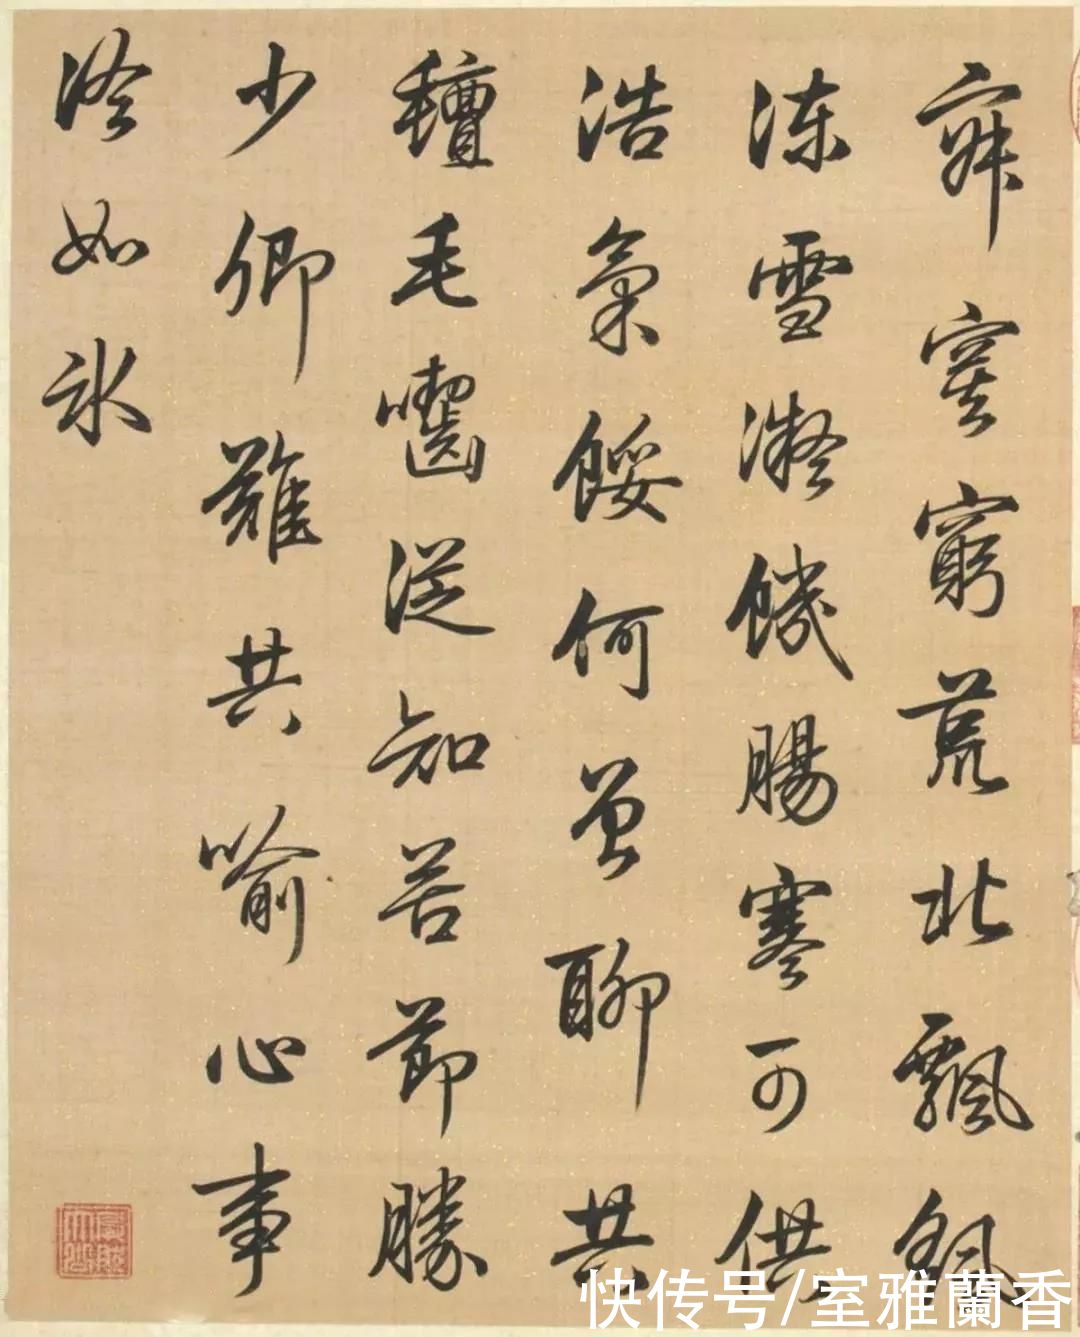 窮荒北飄颻
凍雪凝饑腸寒可供
浩氣餒何曾聊共
氊毛嚙從知苦節勝
少卿難共喻心事
冷如氷
快传号/室雅蘭香